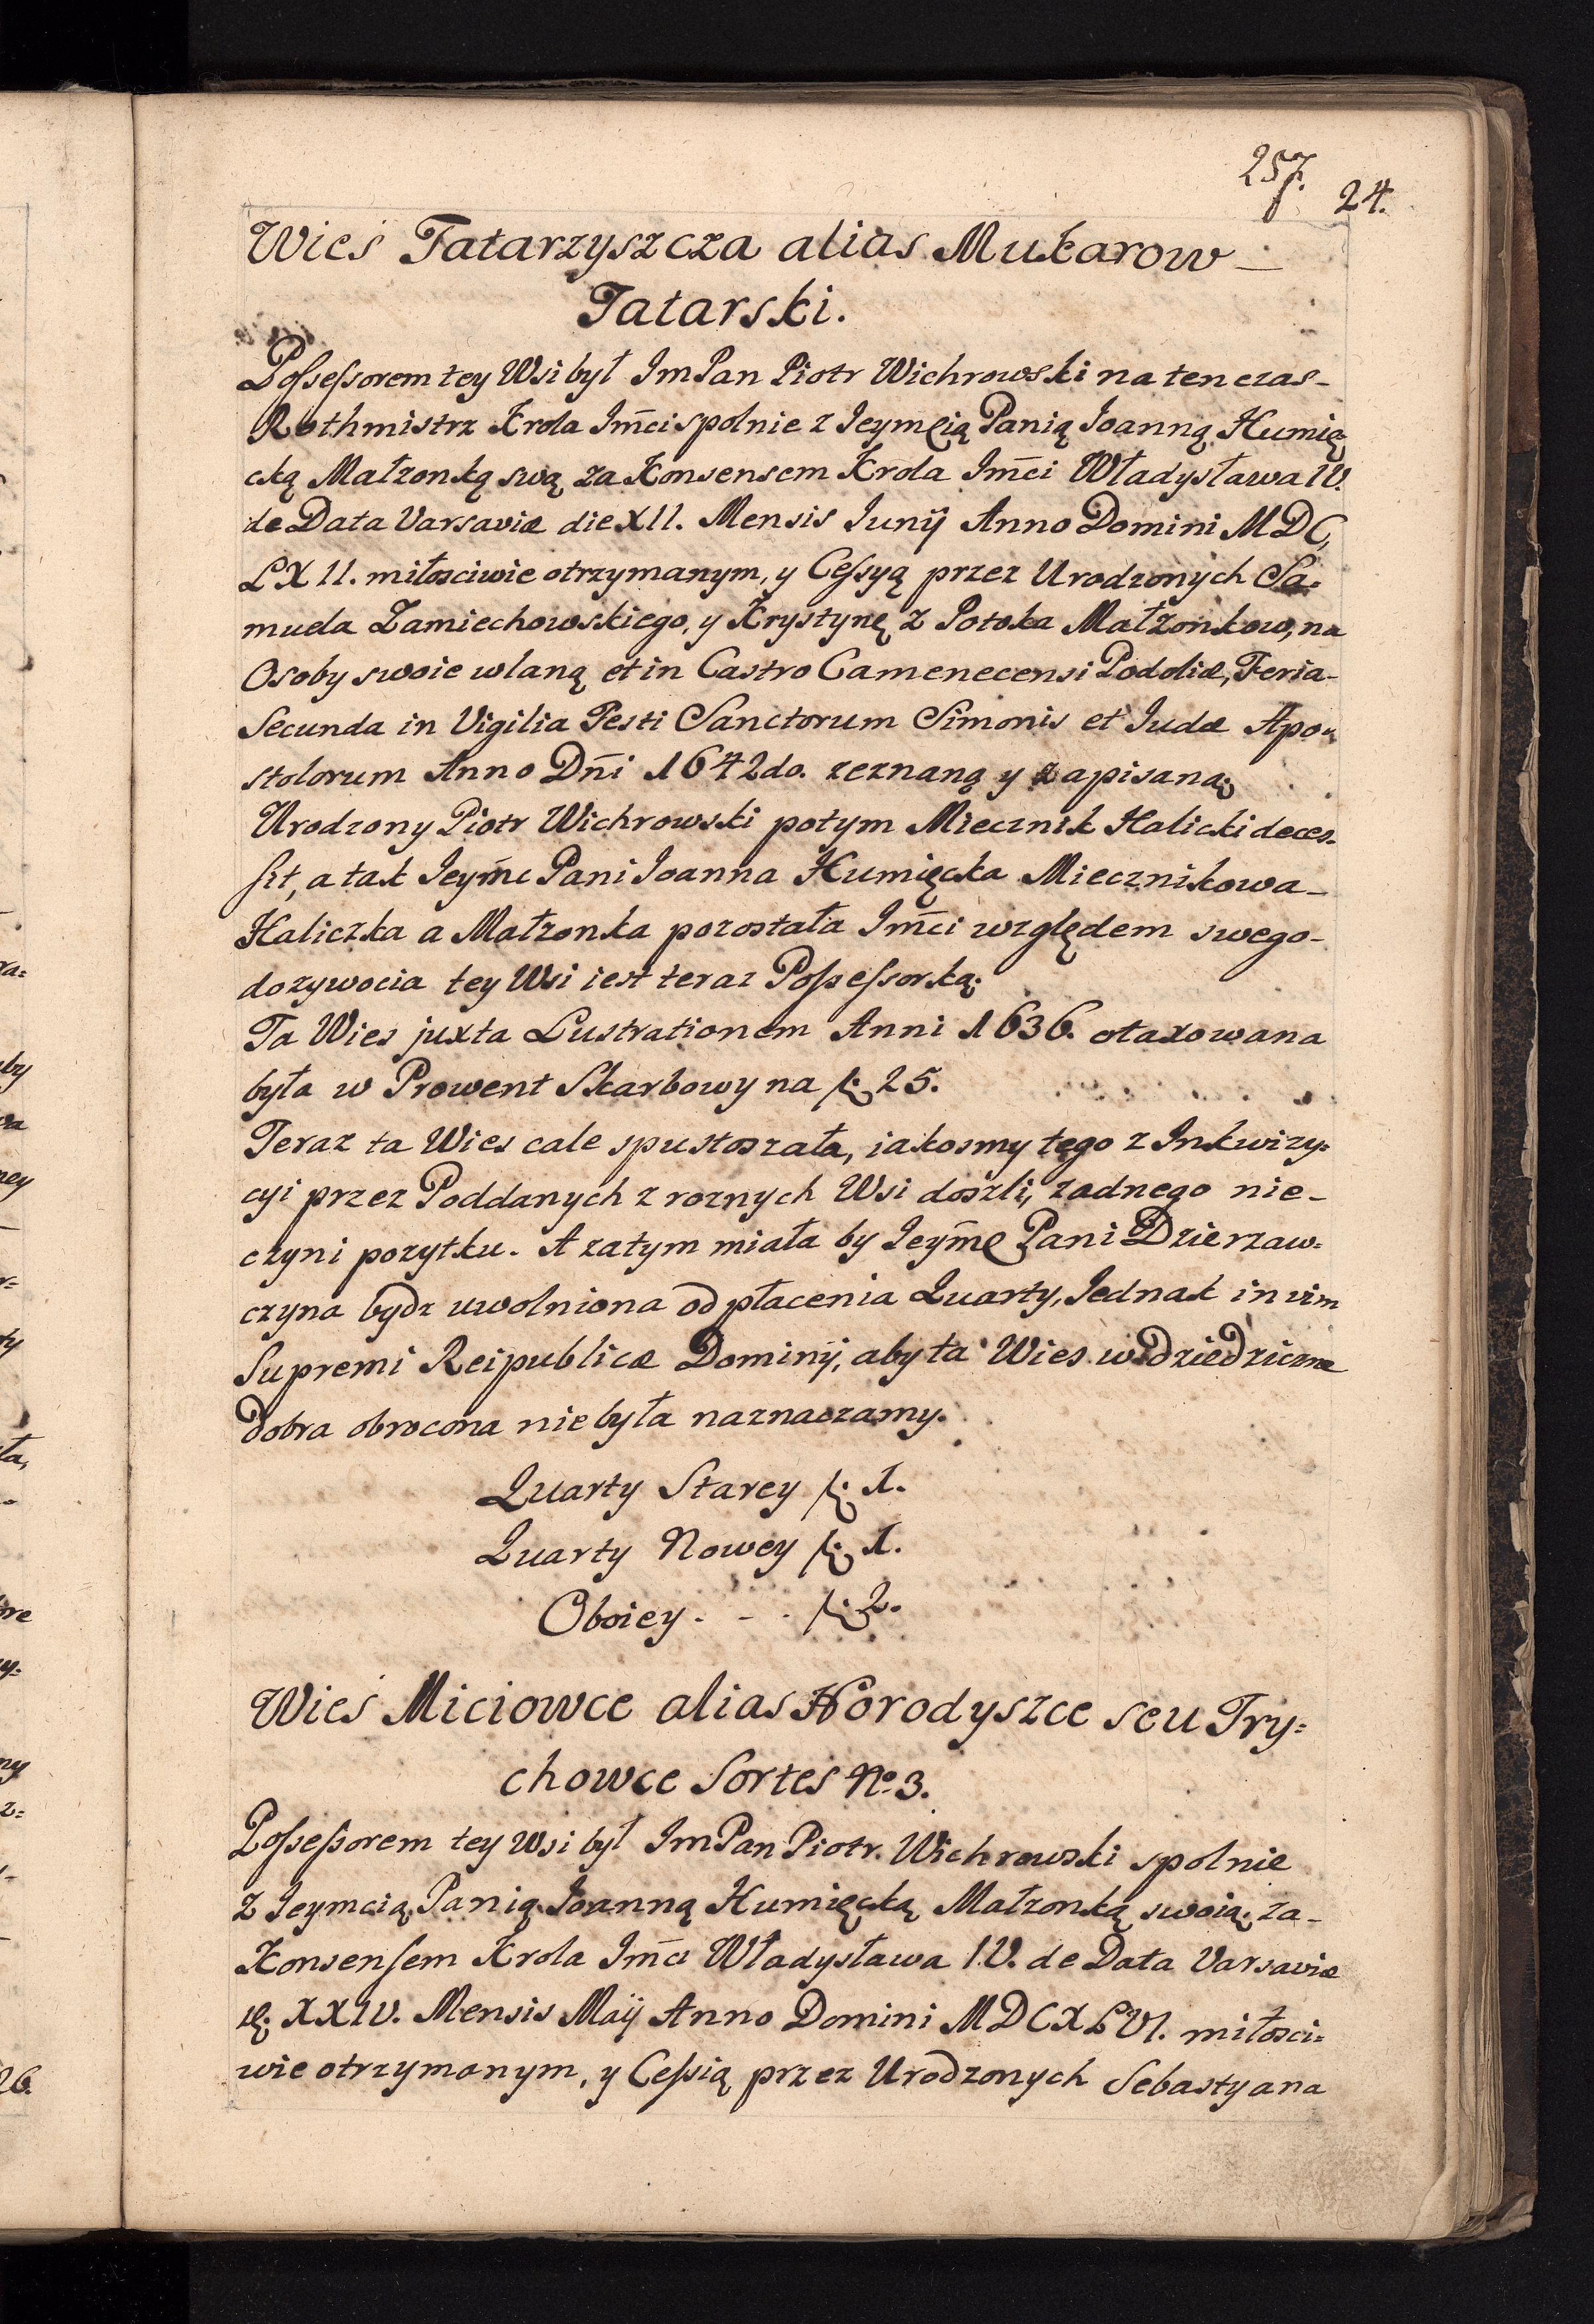 257.
24.
Wieś Tatarzyszcza alias Mukarow
Tatarski.
Possessorem tey Wsi był Im Pan Piotr Wichrowski na ten czas
Rothmistrz Krola Jm̃ci spolnie z Jeymcią Panią Joanną Humię
cką Małzonką swą za Konsensem Krola Jm̃ci Władysława IV.
de Data Varsaviæ die XII. Mensis Junÿ Anno Domini MDC,
LXII. miłosciwie otrzymanym, y Cessyą przez Urodzonych Sa-
muela Zamiechowskiego, y Krystynę z Potoka Małzonkow, na
Osoby swoie wlaną et in Castro Camenecensi Podoliæ, Feria
Secunda in Vigilia Festi Sanctorum Simonis et Judæ Apo-
stolorum Anno Dñi 1642do. zeznaną y zapisaną.
Urodzony Piotr Wichrowski potym Miecznik Halicki deces-
sit, a tak Jeym̃c Pani Joanna Humięcka Miecznikowa
Haliczka a Małzonka pozostała Jm̃ci względem swego
dozywocia tey Wsi iest teraz Possessorką.
Ta Wies juxta Lustrationem Anni 1636. otaxowana
była w Prowent Skarbowy na f. 25.
Teraz ta Wies cale spustoszała, iakosmy tego z Inkwizy-
cyi przez Poddanych z roznych Wsi doszli, zadnego nie
czyni pozytku. A zatym miała by Jeym̃c Pani Dzierzaw-
czyna bydz uwolniona od płacenia Quarty, Jednak in vim
Supremi Reipublicæ Dominÿ, aby ta Wies w dziedziczne
dobra obrocona nie była naznaczamy.
Quarty Starey f. 1.
Quarty Nowey f. 1.
Oboiey . - . f. 2.
Wieś Miciowce alias Horodyszce seu Try=
chowce Sortes No. 3.
Possessorem tey Wsi był Im Pan Piotr Wichrowski spolnie
z Jeymcią Panią Joanną Humięcką Małzonką swoią, za
Konsensem Krola Jm̃ci Władysława IV. de Data Varsaviæ
d. XXIV. Mensis Maÿ Anno Domini MDCXLVI. miłosci=
wie otrzymanym, y Cessią przez Urodzonych Sebastyana